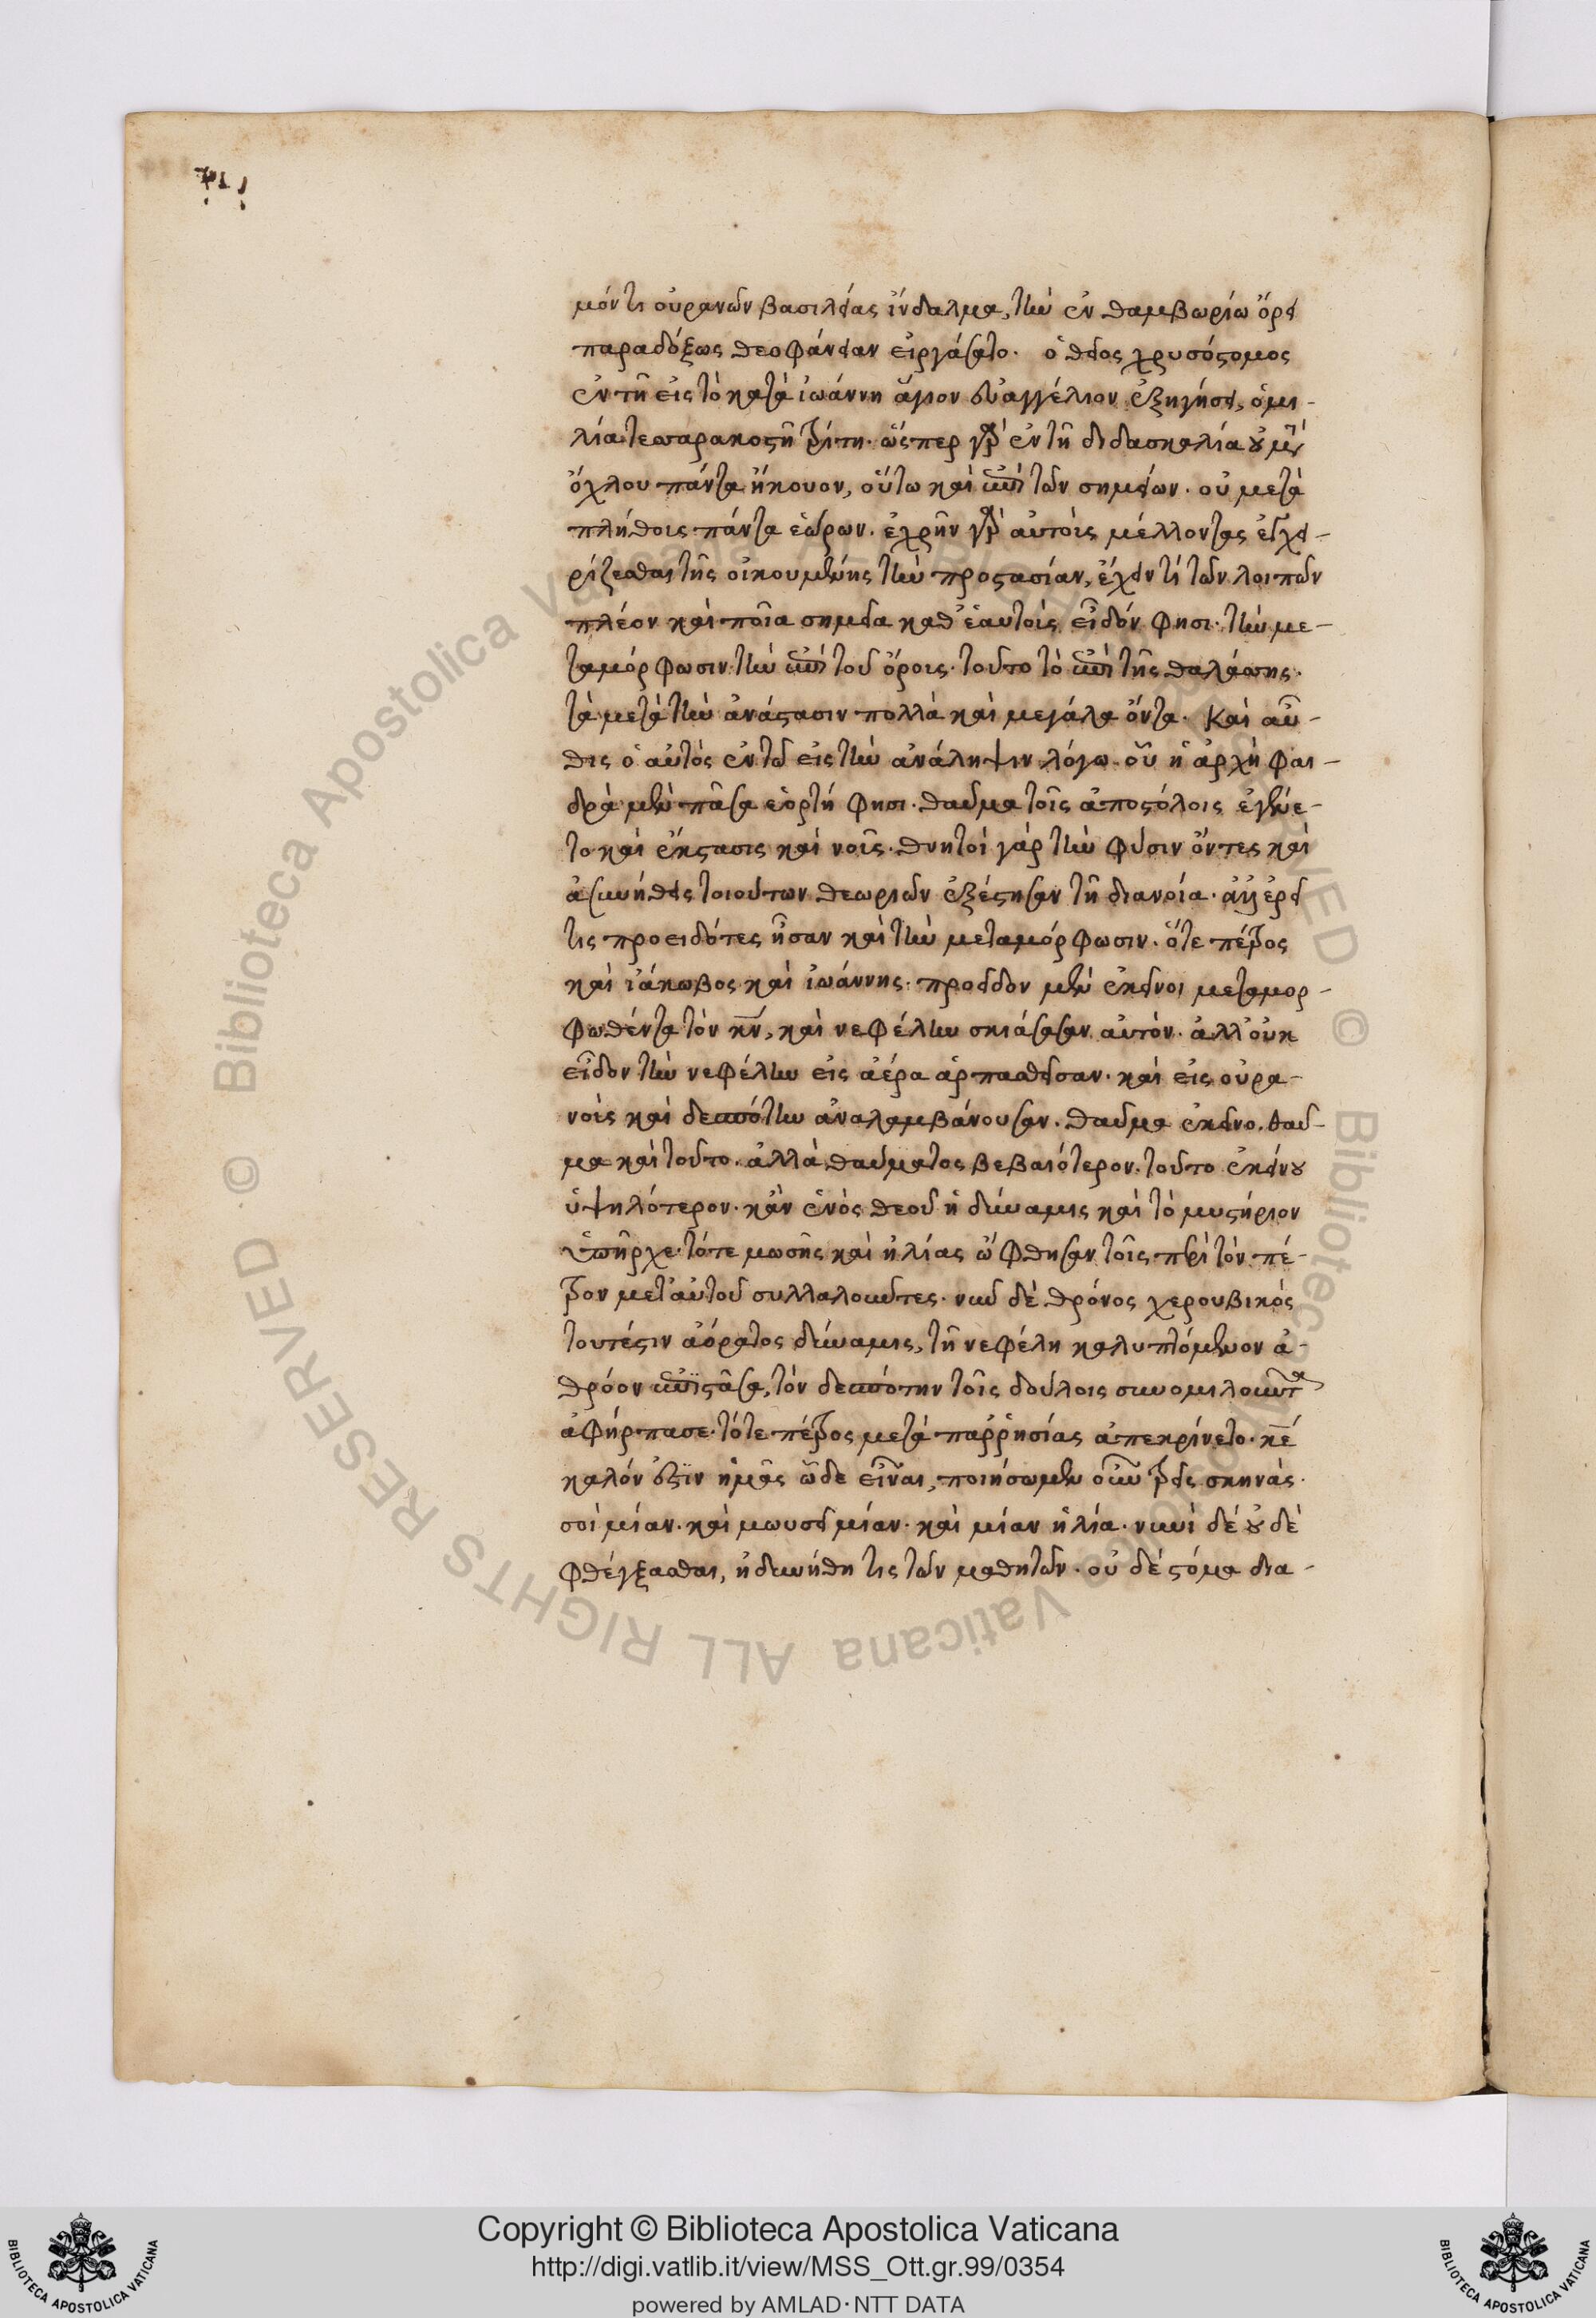 μόν τι οὐρανῶν βασιλείας ἴνδαλμα, τὴν ἐν θαμβωρίω ὄρει
παραδόξως θεοφάνειαν εἰργάσατο. ὁ θεῖος χρυσόστομος
ἐν τῆ εἰς τὸ κατὰ ἰωάννην ἅγιον εὐαγγέλιον ἐξηγήσει, ὁμι-
λία τεσσαρακοστῆ τρίτη. ὥσπερ γὰρ ἐν τῆ διδασκαλία οὐ μετὰ
ὄχλου πάντα ἤκουον, οὕτω καὶ ἐπὶ τῶν σημείων. οὐ μετὰ
πλήθους πάντα ἑώρων. ἐχρῆν γὰρ αὐτοὺς μέλλοντας ἐγχει-
ρίζεσθαι τῆς οἰκουμένης τὴν προστασίαν, ἔχειν τί τῶν λοιπῶν
πλέον καὶ ποῖα σημεῖα καθ' ἑαυτοὺς εἶδόν φησι. τὴν με-
ταμόρφωσιν τὴν ἐπὶ τοῦ ὄρους. τοῦτο τὸ ἐπὶ τῆς θαλάσσης.
τὰ μετὰ τὴν ἀνάστασιν πολλὰ καὶ μεγάλα ὄντα. Καὶ αὖ-
θις ὁ αὐτὸς ἐν τῶ εἰς τὴν ἀνάληψιν λόγω. οὗ ἡ ἀρχὴ φαι-
δρὰ μὲν πᾶσα ἑορτή φησι. θαῦμα τοῖς ἀποστόλοις ἐγένε-
το καὶ ἔκστασις καὶ νοῦς. θνητοὶ γὰρ τὴν φύσιν ὄντες καὶ
ἀσυνήθεις τοιούτων θεωριῶν ἐξέστησαν τῆ διανοία.
τις προειδότες ἦσαν καὶ τὴν μεταμόρφωσιν. ὅτε πέτρος
καὶ ἰάκωβος καὶ ἰωάννης. προεῖδον μὲν ἐκεῖνοι μεταμορ-
φωθέντα τὸν κν, καὶ νεφέλην σκιάσασαν αὐτόν. ἀλλ' οὐκ
εἶδον τὴν νεφέλην εἰς ἀέρα ἁρπασθεῖσαν. καὶ εἰς οὐρα-
νοὺς καὶ δεσπότην ἀναλαμβάνουσαν. θαῦμα ἐκεῖνο. θαῦ-
μα καὶ τοῦτο. ἀλλὰ θαύματος βεβαιότερον. τοῦτο ἐκείνου
ὑψηλότερον. κἂν ἑνὸς θεοῦ ἡ δύναμις καὶ τὸ μυστήριον
ὑπῆρχε. τότε μωσῆς καὶ ἠλίας ὤφθησαν τοῖς περὶ τὸν πέ-
τρον μετ' αὐτοῦ συλλαλοῦντες. νῦν δὲ θρόνος χερουβικός
τουτέστιν ἀόρατος δύναμις, τῆ νεφέλη καλυπτόμενον ἀ-
θρόον ἐπιστᾶσα, τὸν δεσπότην τοῖς δούλοις συνομιλοῦντα
ἀφήρπασε. τότε πέτρος μετὰ παῤῥησίας ἀπεκρίνετο. κε
καλόν ἐστϊν ἡμᾶς ὧδε εἶναι, ποιήσωμεν οὖν τρεῖς σκηνάς.
σοὶ μίαν. καὶ μωυσεῖ μίαν. καὶ μίαν ἠλία. νυνὶ δὲ οὐδὲ
φθέγξασθαι, ἠδυνήθη τις τῶν μαθητῶν. οὐ δὲ στόμα δια-
Copyright © Biblioteca Apostolica Vaticana
http://digi.vatlib.it/view/MSS_Ott.gr.99/0354
powered by AMLAD·NTT DATA
BIBLIOTECA APOSTOLICA VATICANA
BIBLIOTECA APOSTOLICA VATICANA
© Biblioteca Apostolica Vaticana ALL RIGHTS RESERVED